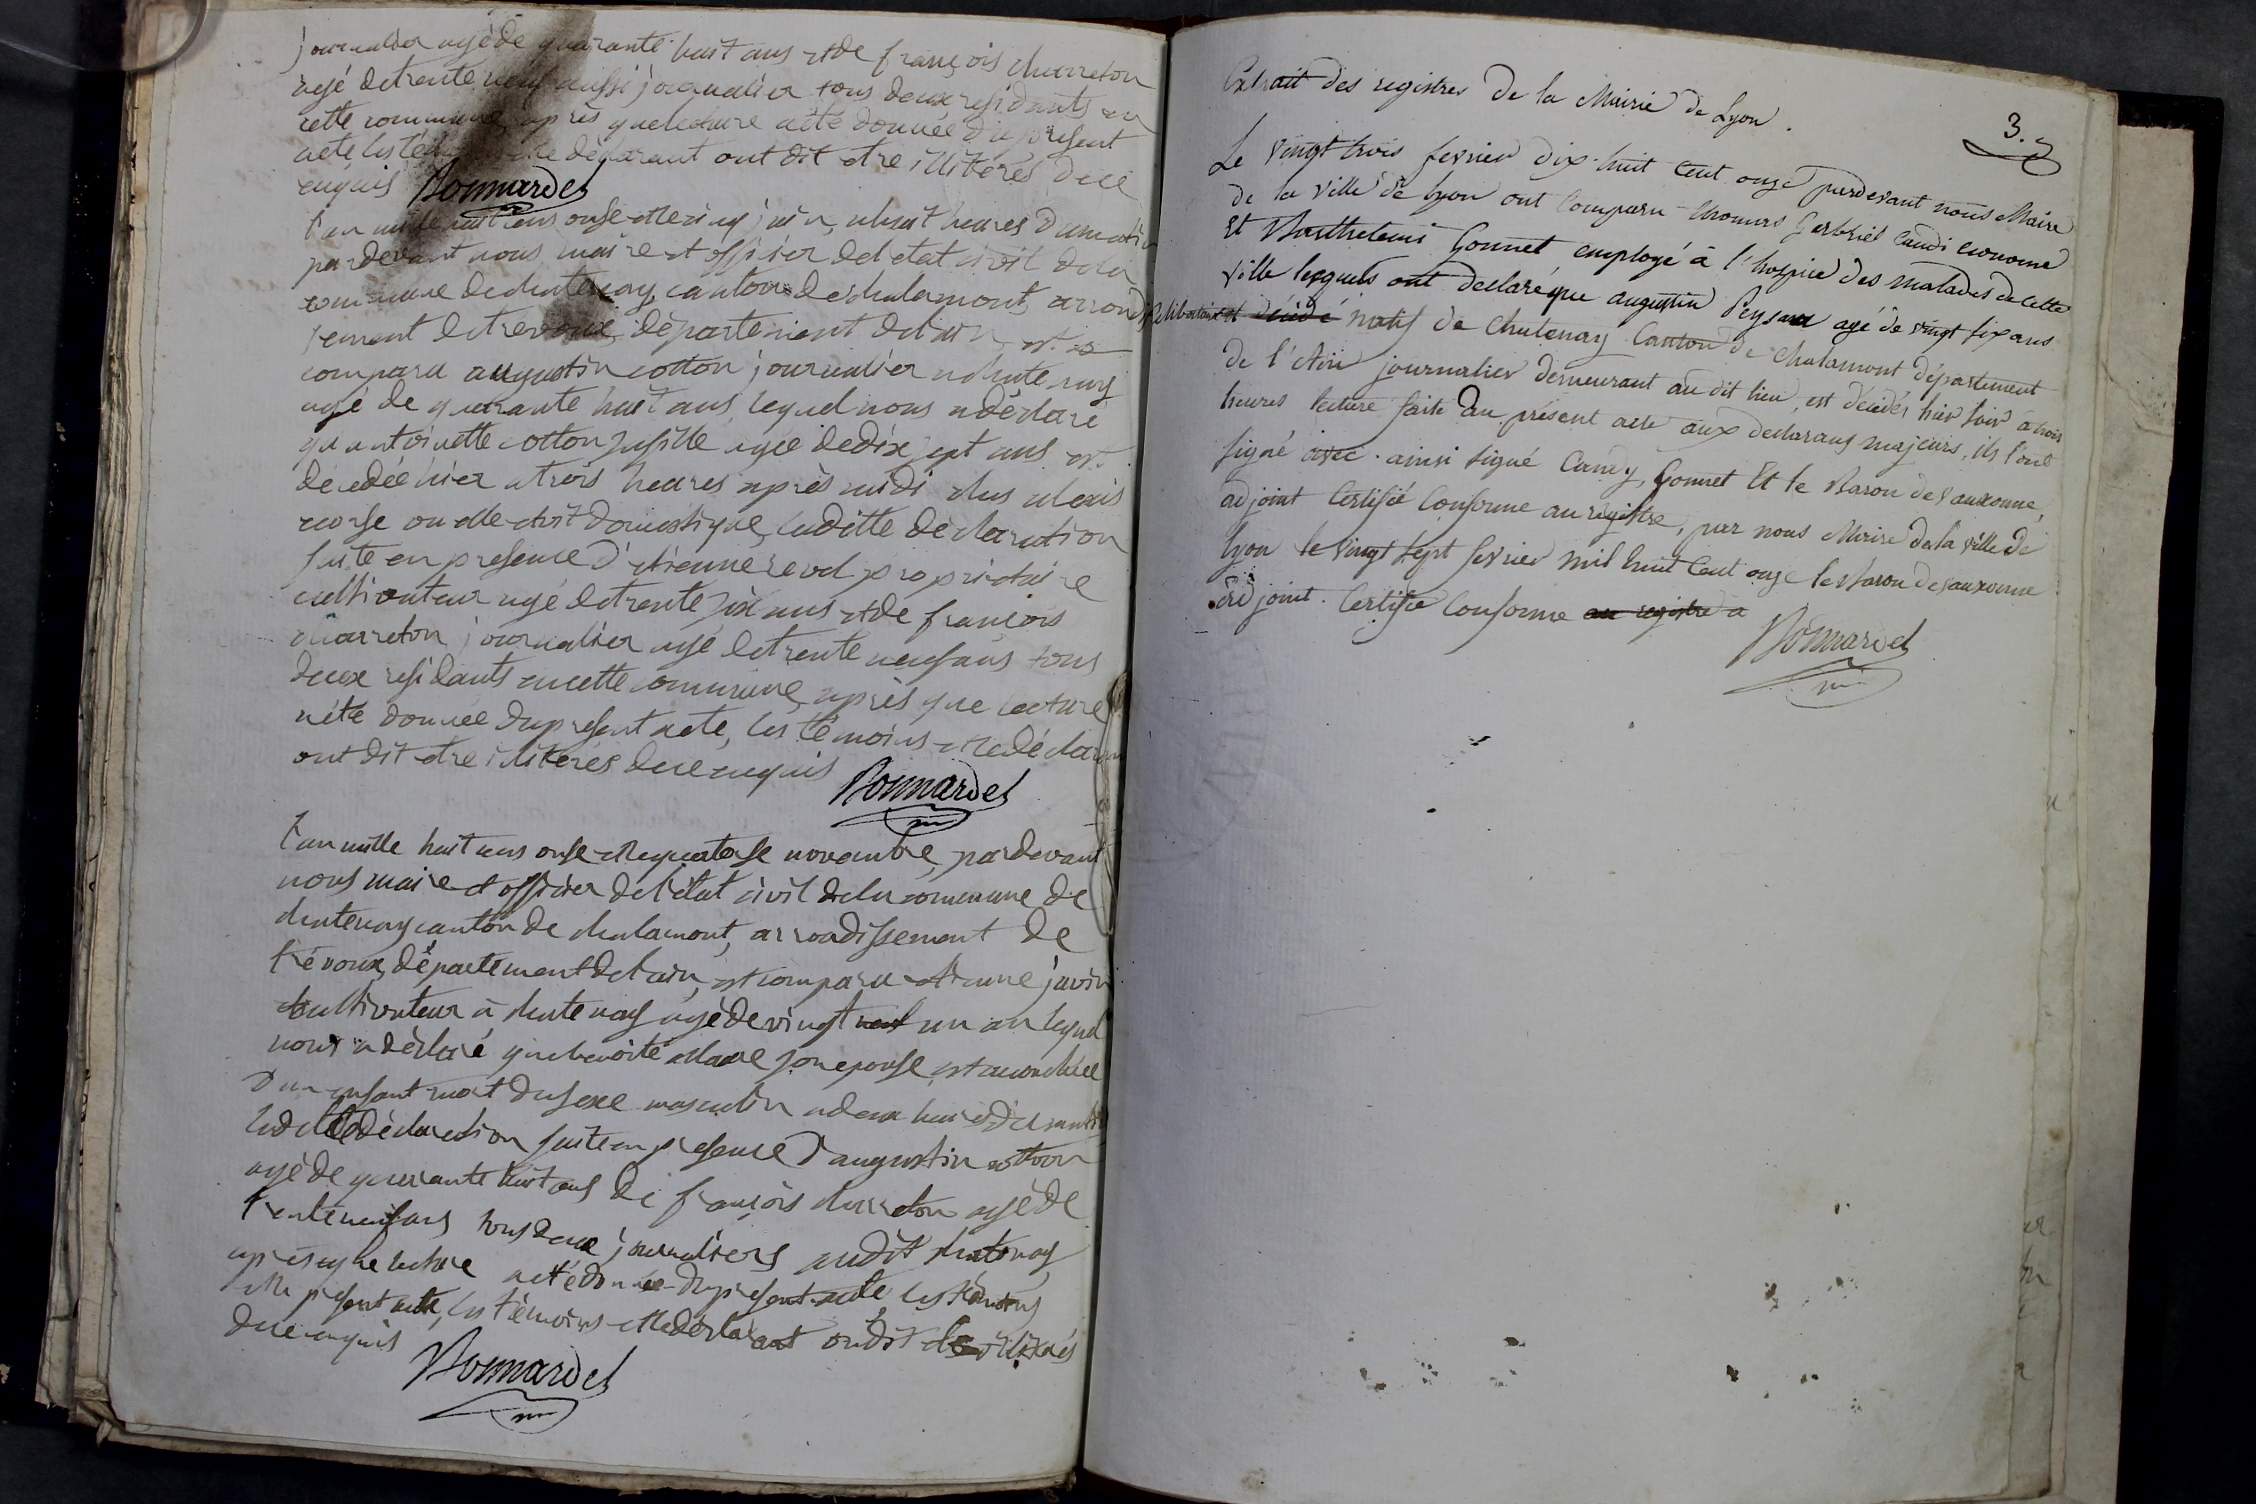 journalier agé de quarante huit ans et de françois charreton
agé de trente neuf aussi journalier tous deux residants en
cette commune, après que lecture a été donnée du present
acte les declarant ont dit etre illitérés de ce
enquis Bonnardel
l'an mille huit cens onse et le cinq juin, a huit heures du matin
par devant nous maire et officier de l'etat civil de la
commune de chatenay, canton de chalamont, arrondis
sement de trevoux, département de l'ain, est
comparu augustin cotton journalier a chatenay
agé de quarante huit ans, lequel nous a déclaré
qu'antoinette cotton sa fille agée de dix sept ans est
décédée hier a trois heures après midi chés alexis
ou elle etoit domestique, laditte déclaration
faite en presence d'etienne revel propriétaire
cultivateur agé de trente six ans et de françois
charreton journalier agé de trente neuf ans tous
deux residants en cette commune, après que lecture
a été donnée du present acte, les témoins et le déclarant
ont dit etre illitérés de ce enquis
Bonnardel
l'an mille huit cens onse et le quatorse novembre, par devant
nous maire et officier de l'état civil de la commune de
chatenay canton de chalamont, arrondissement de
trévoux, département de l'ain, est comparu etienne javin
cultivateur à chatenay agé de vingt neuf un an lequel
nous a déclaré que benoîte son epouse, est accouchée
d'un enfant mort du sexe masculin a deux heures du matin
laditte déclaration faite en presence d'augustin cotton
agé de quarante huit ans de françois charreton agé de
trente neuf ans tous deux journaliers audit chatenay
après que lecture a été donnée du present acte, les témoins
et le present acte, les témoins et le déclarant ondit etre illitérés
de ce enquis
Bonnardel
3.
Extrait des registres de la Mairie de Lyon.
Le vingt trois fevrier dix-huit cent onze pardevant nous Maire
de la ville de Lyon ont comparu thomas Gabriel Candi econome
Et Barthelemi Gonnet employé à l'hospice des malades de cette
ville lesquels ont declaré que augustin Peysson agé de vingt six ans
celibataire et décédé natif de Chatenay Canton de chalamont département
de l'Ain journalier demeurant au dit lieu, est décédés hier soir à trois
heures lecture faite du présent acte aux declarans majeurs, ils l'ont
signé avec. ainsi signé Candy, Gonnet Et le Baron de Vauxonne,
adjoint Certifié Conforme au registre, par nous Maire de la ville de
Lyon le vingt sept fevrier mil huit cent onze le Baron de Vauxonne
adjoint. Certifié Conforme au registre a
Bonnardel